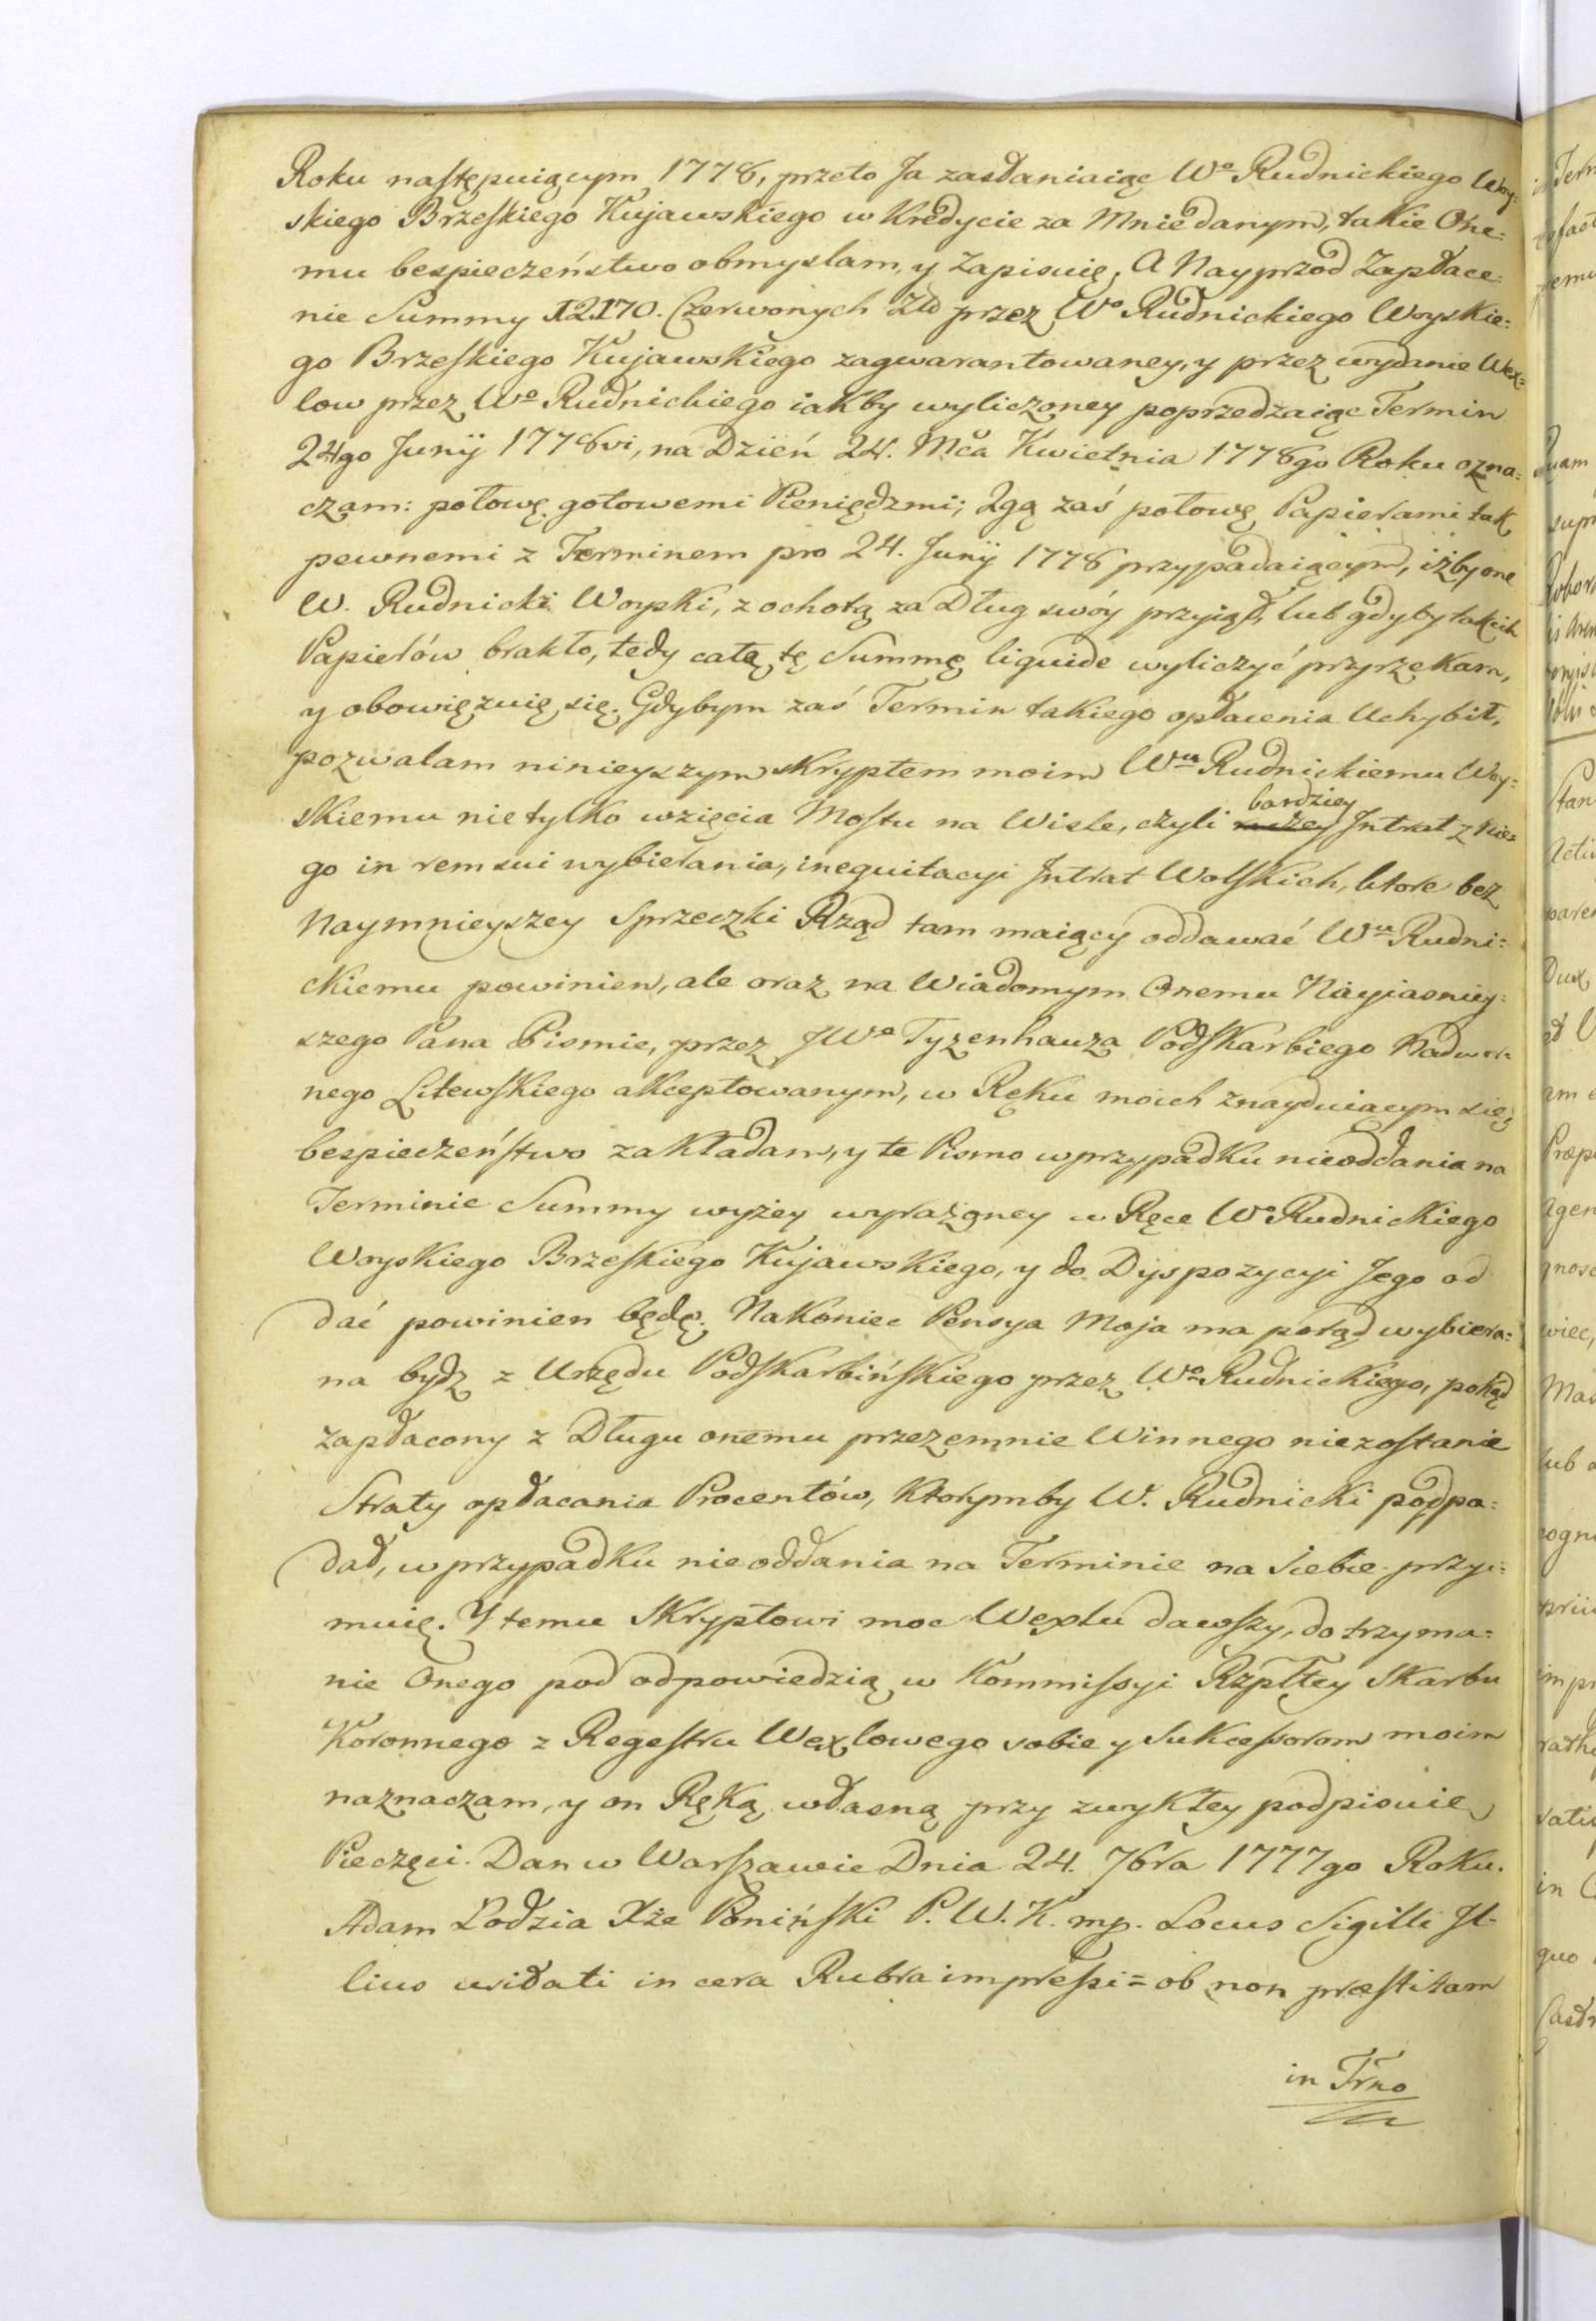 Roku następuiącym 1778, przeto Ja zasłaniaiąc Wo Rudnickiego Woy-
skiego Brzeskiego Kujawskiego w Kredycie za Mnie danym, takie One:
mu bespieczeństwo obmyslam, y Zapisuię, A Nayprzod Zapłace:
nie Summy 12170. Czerwonych Zło przez Wo Rudnickiego Woyskie:
go Brzeskiego Kujawskiego zagwarantowaney, y przez wydanie Wex=
low przez Wo Rudnickiego iakby wyliczoney poprzedzaiąc Termin
24go Junij 1778vi, na Dzień 24. Mca Kwietnia 1778go Roku ozna=
czam: połowę gotowemi Pieniędzmi; 2gą zaś połowę Papierami tak
pewnemi z Terminem pro 24. Junij 1778 przypadaiącym, iżby one
W. Rudnicki Woyski, z ochotą za Dług swóy przyiął, lub gdyby takich
Papierów brakło, tedy całą tę Summę liquide wyliczyć przyrzekam,
y obowięzuię się. Gdybym zaś Termin takiego opłacenia Uchybił,
pozwalam ninieyszym skryptem moim Wu Rudnickiemu Woy=
skiemu nie tylko wzięcia Mostu na Wisle, czyli bardziey Intrat z nie=
go in rem sui wybierania, inequitacyi Intrat Wolskich, ktore bez
Naymnieyszey Sprzeczki Rząd tam maiący oddawać Wu Rudni=
ckiemu powinien, ale oraz na Wiadomym Onemu Nayiasniey=
szego Pana Pismie, przez JWo Tyzenhauza Podskarbiego Nadwor=
nego Litewskiego akceptowanym, w Ręku moich znayduiącym się,
bespieczeństwo zakładam, y te Pismo w przypadku nieoddania na
Terminie Summy wyżey wyrażoney w Ręce Wo Rudnickiego
Woyskiego Brzeskiego Kujawskiego, y do Dyspozycyi Jego od
dać powinien będę. Nakoniec Pensya Moja ma porąd wybiera=
na bydz z Urzędu Podskarbińskiego przez Wo Rudnickiego, pokąd
zapłacony z Długu onemu przezemnie Winnego niezostanie
Straty opłacania Procentów, ktorymby W. Rudnicki podpa=
dał, w przypadku nieoddania na Terminie na siebie przyi=
muię. Y temu Skryptowi moc Wexlu dawszy, dotrzyma=
nie Onego pod odpowiedzią w Kommissyi Rzpltey Skarbu
Koronnego z Regestru Wexlowego sobie y Sukcessorom moim
naznaczam, y on Ręką własną przy zwykłey podpisuię
Pieczęci. Dan w Warszawie Dnia 24. 7bra 1777go Roku.
Adam Łodzia Xże Poniński P. W. K. mp. Locus Sigilli Jl-
lius uridati in cera Rubra impressi = ob non præstitam
in Trno